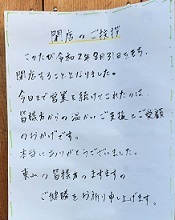 閉店のご挨拶
このたび令和2年8月31日をもち、
閉店することとなりました。
今日まで営業を続けてこれたのは、
皆様方からの温かいご支援とご愛顧
のおかげです。
本当にありがとうございました。
東山の皆様方のますますの
ご健勝をお祈り申し上げます。